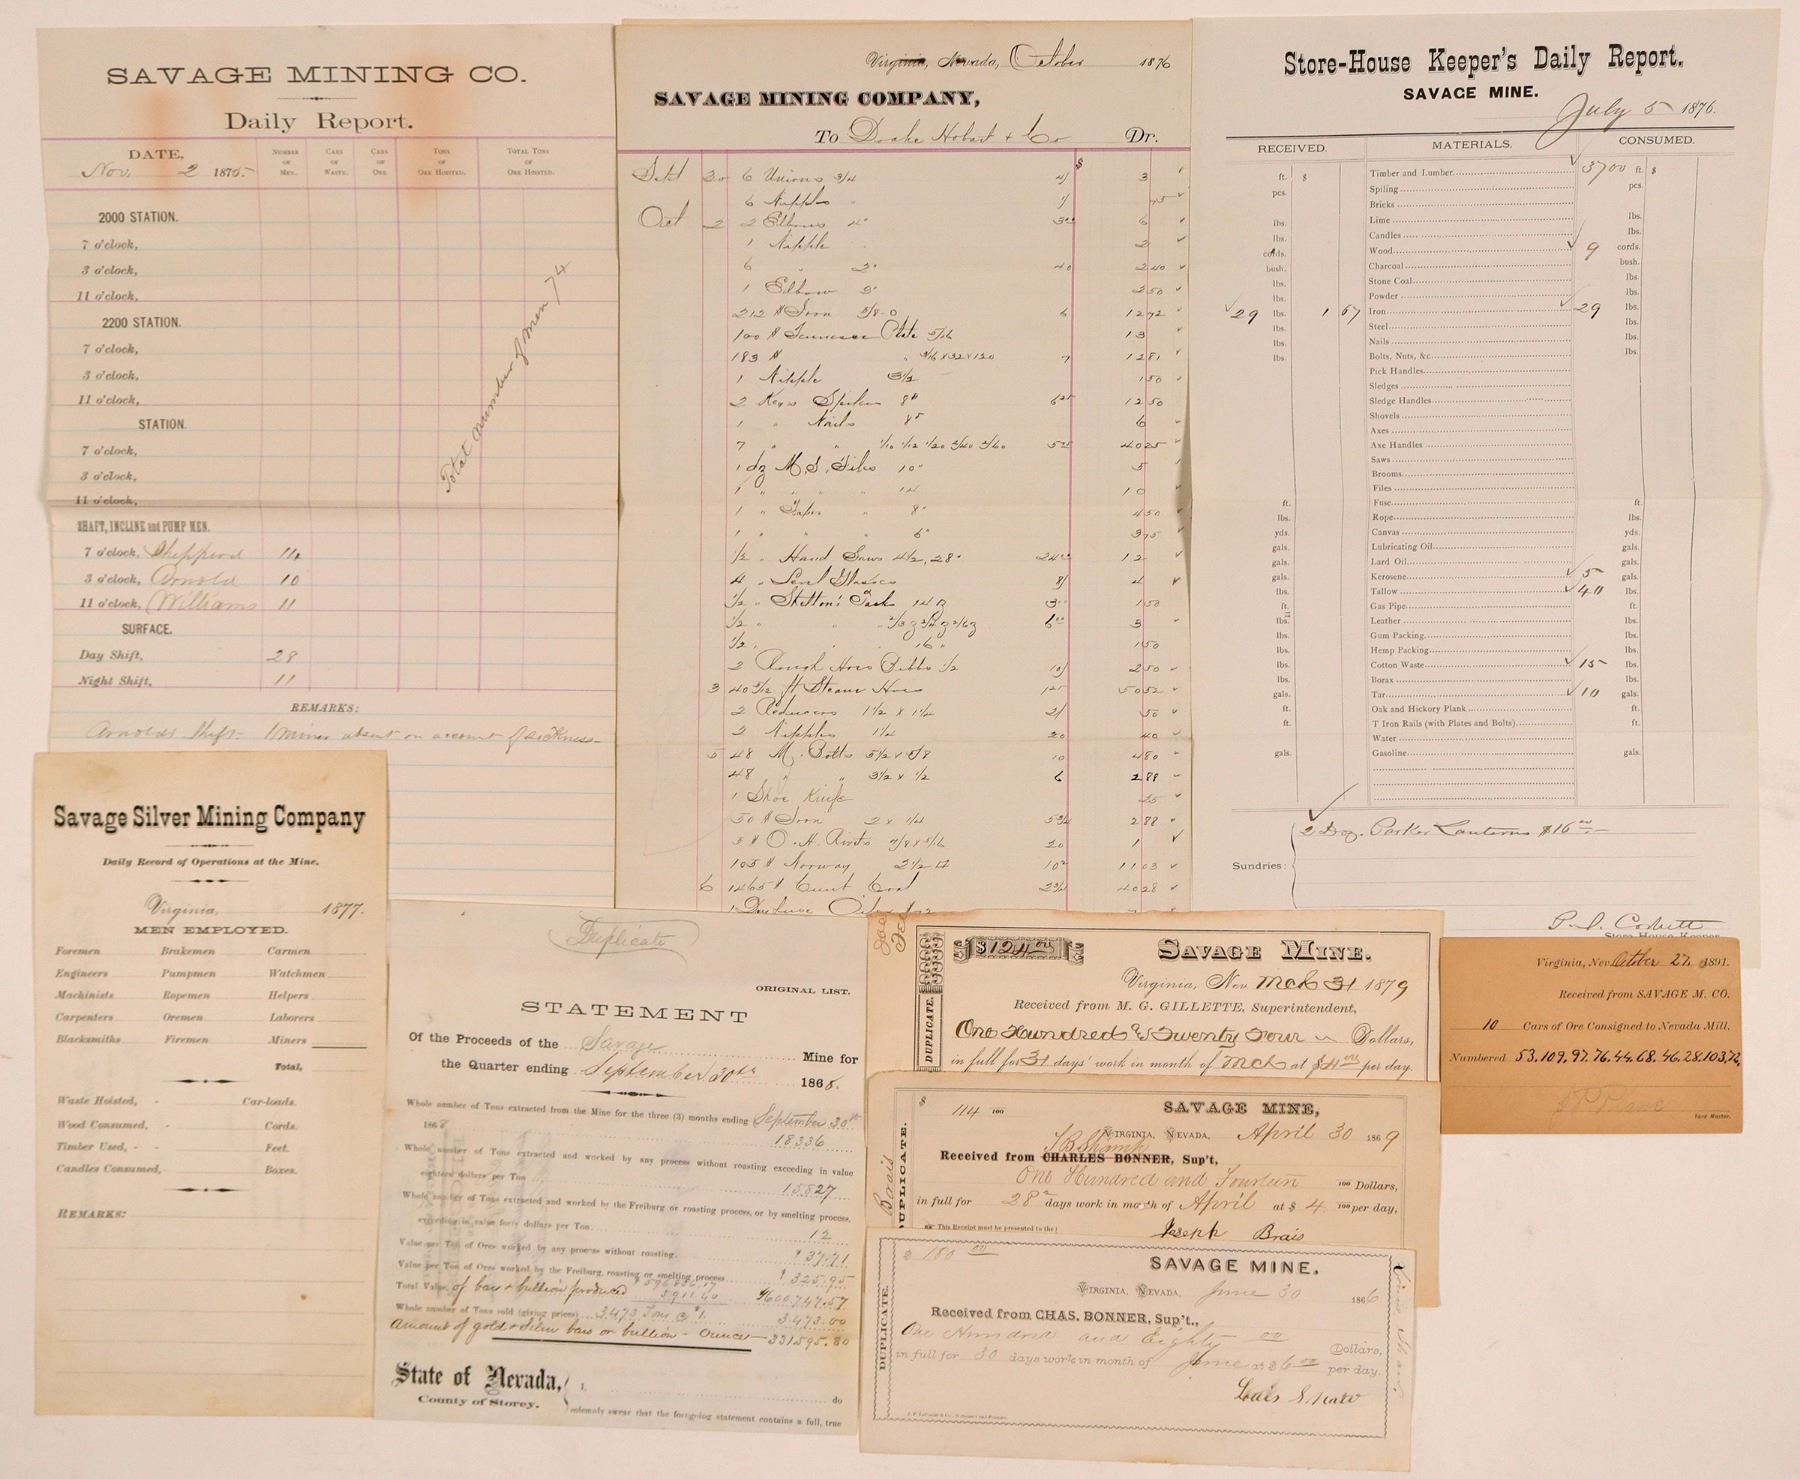 SAVAGE MINING CO.
Daily Report.
DATE,
NUMBER OF MEN.
CARS OF WASTE.
CARS OF ORE.
TONS OF ORE HOISTED.
TOTAL TONS OF ORE HOISTED.
Nov. 2 1875.
2000 STATION.
7 o'clock,
3 o'clock,
11 o'clock,
2200 STATION.
7 o'clock,
3 o'clock,
11 o'clock,
STATION.
7 o'clock,
3 o'clock,
11 o'clock,
Total number of men 74
SHAFT, INCLINE and PUMP MEN.
7 o'clock, Shepperd 14
3 o'clock, Arnold 10
11 o'clock, Williams 11
SURFACE.
Day Shift, 28
Night Shift, 11
REMARKS:
Arnolds shift- 1 miner absent on account of sickness-
Virginia, Nevada, October 1876
SAVAGE MINING COMPANY,
To Drake Hobart & Co Dr.
6 Unions 3/4 3
6 Nipples
Oct 2 2 Elbows 6
1 Nipple 2
6 " 2" 40 2 40
1 Elbow 2 50
212 # Iron 6 12 72
100 # Tennessee Plate 5/16 13
183 # " 3/16 x 32 x 120 7 12 81
1 Nipple 3 1/2 1 50
2 Kegs Spikes 8" 6 25 12 50
1 " Nails 6
7 40 25
1 dz 10" 5
1 " 14 10
1 " 8" 4 50
1 " 6" 3 75
1/2 " Hand Saws 4 1/2, 28" 24 00 12
4 " 4
1/2 " 1 50
1/2 " 6 00 3
1/2 " 16 " 1 50
2 Rough Hose Bibbs 1/2 2 50
3 40 5/12 ft Steam Hose 1 25 50 52
2 Reducers 1 1/2 x 1 1/4 50
2 Nipples 1 1/4 20 40
5 48 M. Bolts 5 1/2 x 5/8 10 4 80
48 " " 3 1/2 x 1/2 6 2 88
1 Shoe Knife 25
50 # Iron 2 x 1/4 5 3/4 2 88
5 # 20 1
105 # Norway 10 1/2 11 03
6 1465 # Cumt Coal 2 3/4 40 28
Store-House Keeper's Daily Report.
SAVAGE MINE.
July 5 1876.
RECEIVED. MATERIALS. CONSUMED.
ft. $ Timber and Lumber 3700 ft. $
pcs. Spiling pcs.
Bricks
lbs. Lime lbs.
lbs. Candles lbs.
cords. Wood 9 cords.
bush. Charcoal bush.
lbs. Stone Coal lbs.
lbs. Powder lbs.
29 lbs. 1 67 Iron 29 lbs.
lbs. Steel lbs.
lbs. Nails lbs.
lbs. Bolts, Nuts, &c. lbs.
Pick Handles
Sledges
Sledge Handles
Shovels
Axes
Axe Handles
Saws
Brooms
Files
ft. Fuse ft.
lbs. Rope lbs.
yds. Canvas yds.
gals. Lubricating Oil gals.
gals. Lard Oil gals.
gals. Kerosene 5 gals.
lbs. Tallow 40 lbs.
ft. Gas Pipe ft.
lbs. Leather lbs.
lbs. Gum Packing lbs.
lbs. Hemp Packing lbs.
lbs. Cotton Waste 15 lbs.
lbs. Borax lbs.
gals. Tar 10 gals.
ft. Oak and Hickory Plank ft.
ft. T Iron Rails (with Plates and Bolts) ft.
Water
gals. Gasoline gals.
Sundries: 2 Doz. Parker Lanterns $16 00
Store House Keeper.
Savage Silver Mining Company
Daily Record of Operations at the Mine.
Virginia, 1877.
MEN EMPLOYED.
Foremen Brakemen Carmen
Engineers Pumpmen Watchmen
Machinists Ropemen Helpers
Carpenters Oremen Laborers
Blacksmiths Firemen Miners
Total,
Waste Hoisted, - Car-loads.
Wood Consumed, - Cords.
Timber Used, - - Feet.
Candles Consumed, - Boxes.
REMARKS:
Duplicate
ORIGINAL LIST.
STATEMENT
Of the Proceeds of the Savage Mine for
the Quarter ending September 30th 1868.
Whole number of Tons extracted from the Mine for the three (3) months ending September 30th
1868 18336
Whole number of Tons extracted and worked by any process without roasting exceeding in value
eighteen dollars per Ton 15827
Whole number of Tons extracted and worked by the Freiburg or roasting process, or by smelting process,
exceeding in value forty dollars per Ton 12
Value per Ton of Ores worked by any process without roasting $37.71
Value per Ton of Ores worked by the Freiburg, roasting or smelting process $325.95
Total Value of bars & bullion produced 3911.40 $600,747.57
Whole number of Tons sold (giving prices) 3,473 Tons @ $1. 3,473.00
Amount of gold & silver bars or bullion - Ounces 331,595.80
State of Nevada,
County of Storey.
I, do
solemnly swear that the foregoing statement contains a full, true
$124 00
SAVAGE MINE.
DUPLICATE.
Virginia, Nev. Mch 31 1879
Received from M. G. GILLETTE, Superintendent,
One Hundred & Twenty Four Dollars,
in full for 31 days' work in month of Mch at $4 00 per day.
$ 114 100
SAVAGE MINE,
DUPLICATE.
Brais
VIRGINIA, NEVADA, April 30 1869
Received from CHARLES BONNER, Sup't,
One Hundred and Fourteen 100 Dollars,
in full for 28 days work in month of April at $ 4 100 per day,
This Receipt must be presented to the
Joseph Brais
$ 180 00
SAVAGE MINE.
DUPLICATE.
VIRGINIA, NEVADA, June 30 1866
Received from CHAS. BONNER, Sup't.,
One Hundred and Eighty 00 Dollars,
in full for 30 days work in month of June at $ 6 00 per day.
Virginia, Nev. October 27, 1891.
Received from SAVAGE M. CO.
10 Cars of Ore Consigned to Nevada Mill.
Numbered 53, 109, 97, 76, 44, 68, 46, 28, 103, 72,
Yard Master.